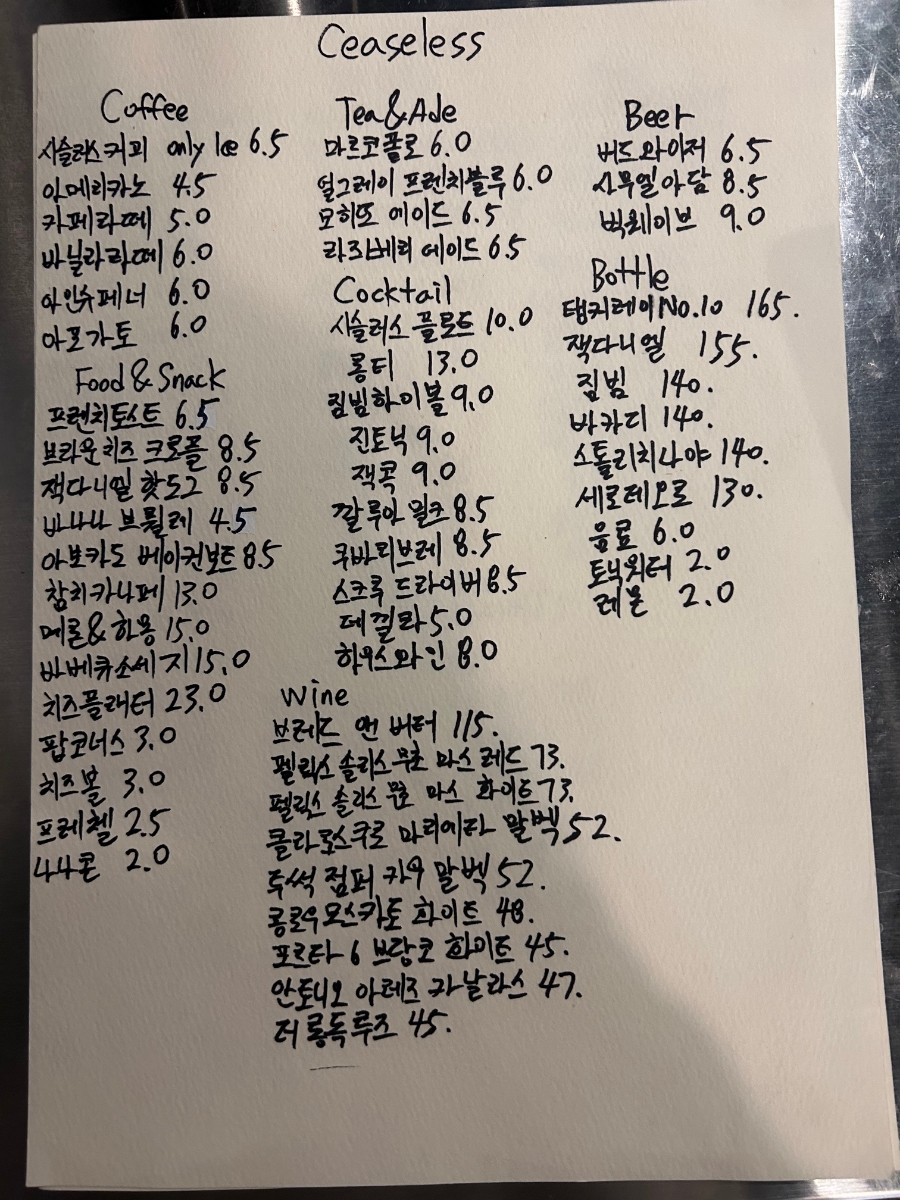 Ceaseless
Coffee
시슬러스커피 only Ice 6.5
아메리카노 4.5
카페라떼 5.0
바닐라라떼 6.0
아인슈페너 6.0
아포가토 6.0
Food & Snack
프렌치토스트 6.5
브라운치즈 크로플 8.5
잭다니엘 핫도그 8.5
바나나 브륄레 4.5
아보카도 베이컨보트 8.5
참치카나페 13.0
메론&하몽 15.0
바베큐소세지 15.0
치즈플래터 23.0
팝코너스 3.0
치즈볼 3.0
프레첼 2.5
나나콘 2.0
Tea & Ade
마르코폴로 6.0
얼그레이 프렌치블루 6.0
모히또 에이드 6.5
라즈베리 에이드 6.5
Cocktail
시슬러스 플로트 10.0
롱티 13.0
짐빔하이볼 9.0
진토닉 9.0
잭콕 9.0
깔루아 밀크 8.5
쿠바리브레 8.5
스크류 드라이버 8.5
데낄라 5.0
하우스와인 8.0
Beer
버드와이저 6.5
사무엘아담 8.5
빅웨이브 9.0
Bottle
탱커레이 No.10 165.
잭다니엘 155.
짐빔 140.
바카디 140.
스톨리치나야 140.
세로레오로 130.
음료 6.0
토닉워터 2.0
레몬 2.0
Wine
브레드 앤 버터 115.
펠릭스 솔리스 무초 마스 레드 73.
펠릭스 솔리스 무초 마스 화이트 73.
클라로스쿠로 마리에타 말벡 52.
투썩 점퍼 카우 말벡 52.
콩로우 모스카토 화이트 48.
포르타 6 브랑코 화이트 45.
안토니오 아레즈 카날라스 47.
더 롱독 루즈 45.